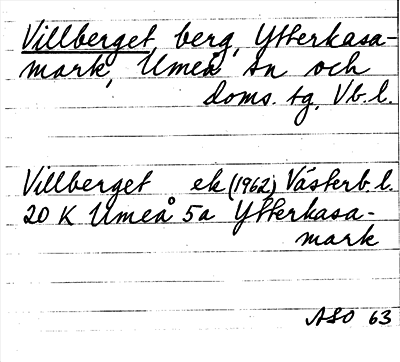 Villberget, berg, Ytterkasa-
mark, Umeå sn och
doms. tg, Vb. l.
Villberget ek (1962) Västerb. l.
20 K Umeå 5a Ytterkasa-
mark
ASO 63